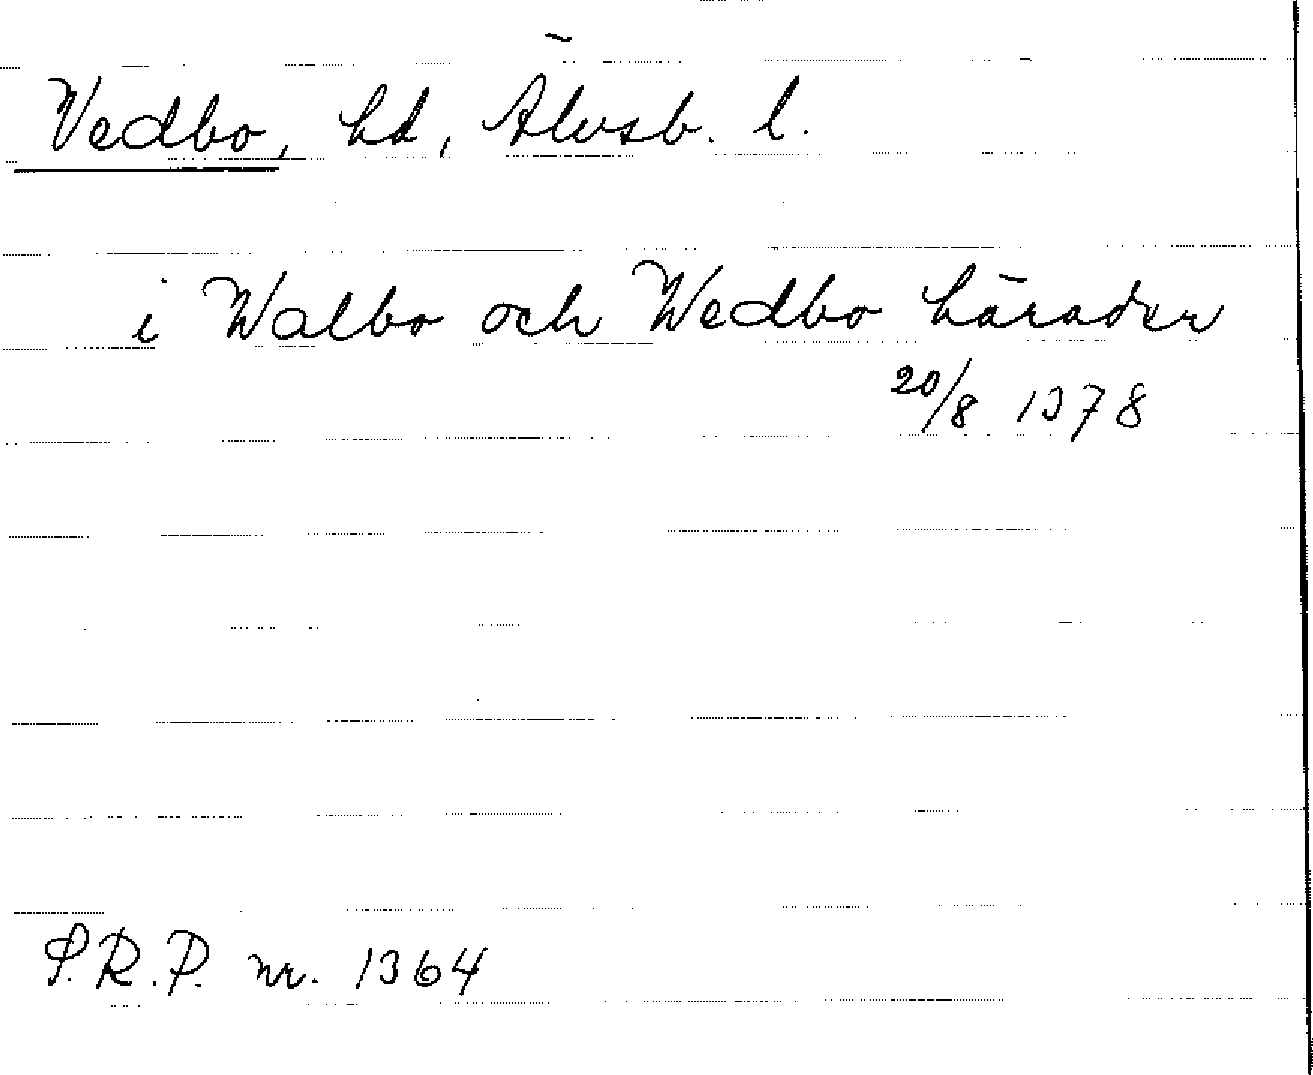 Vedbo, hd, Älvsb. l.
i Walbo och Wedbo härader
20/8 1378
S.R.P. nr. 1364